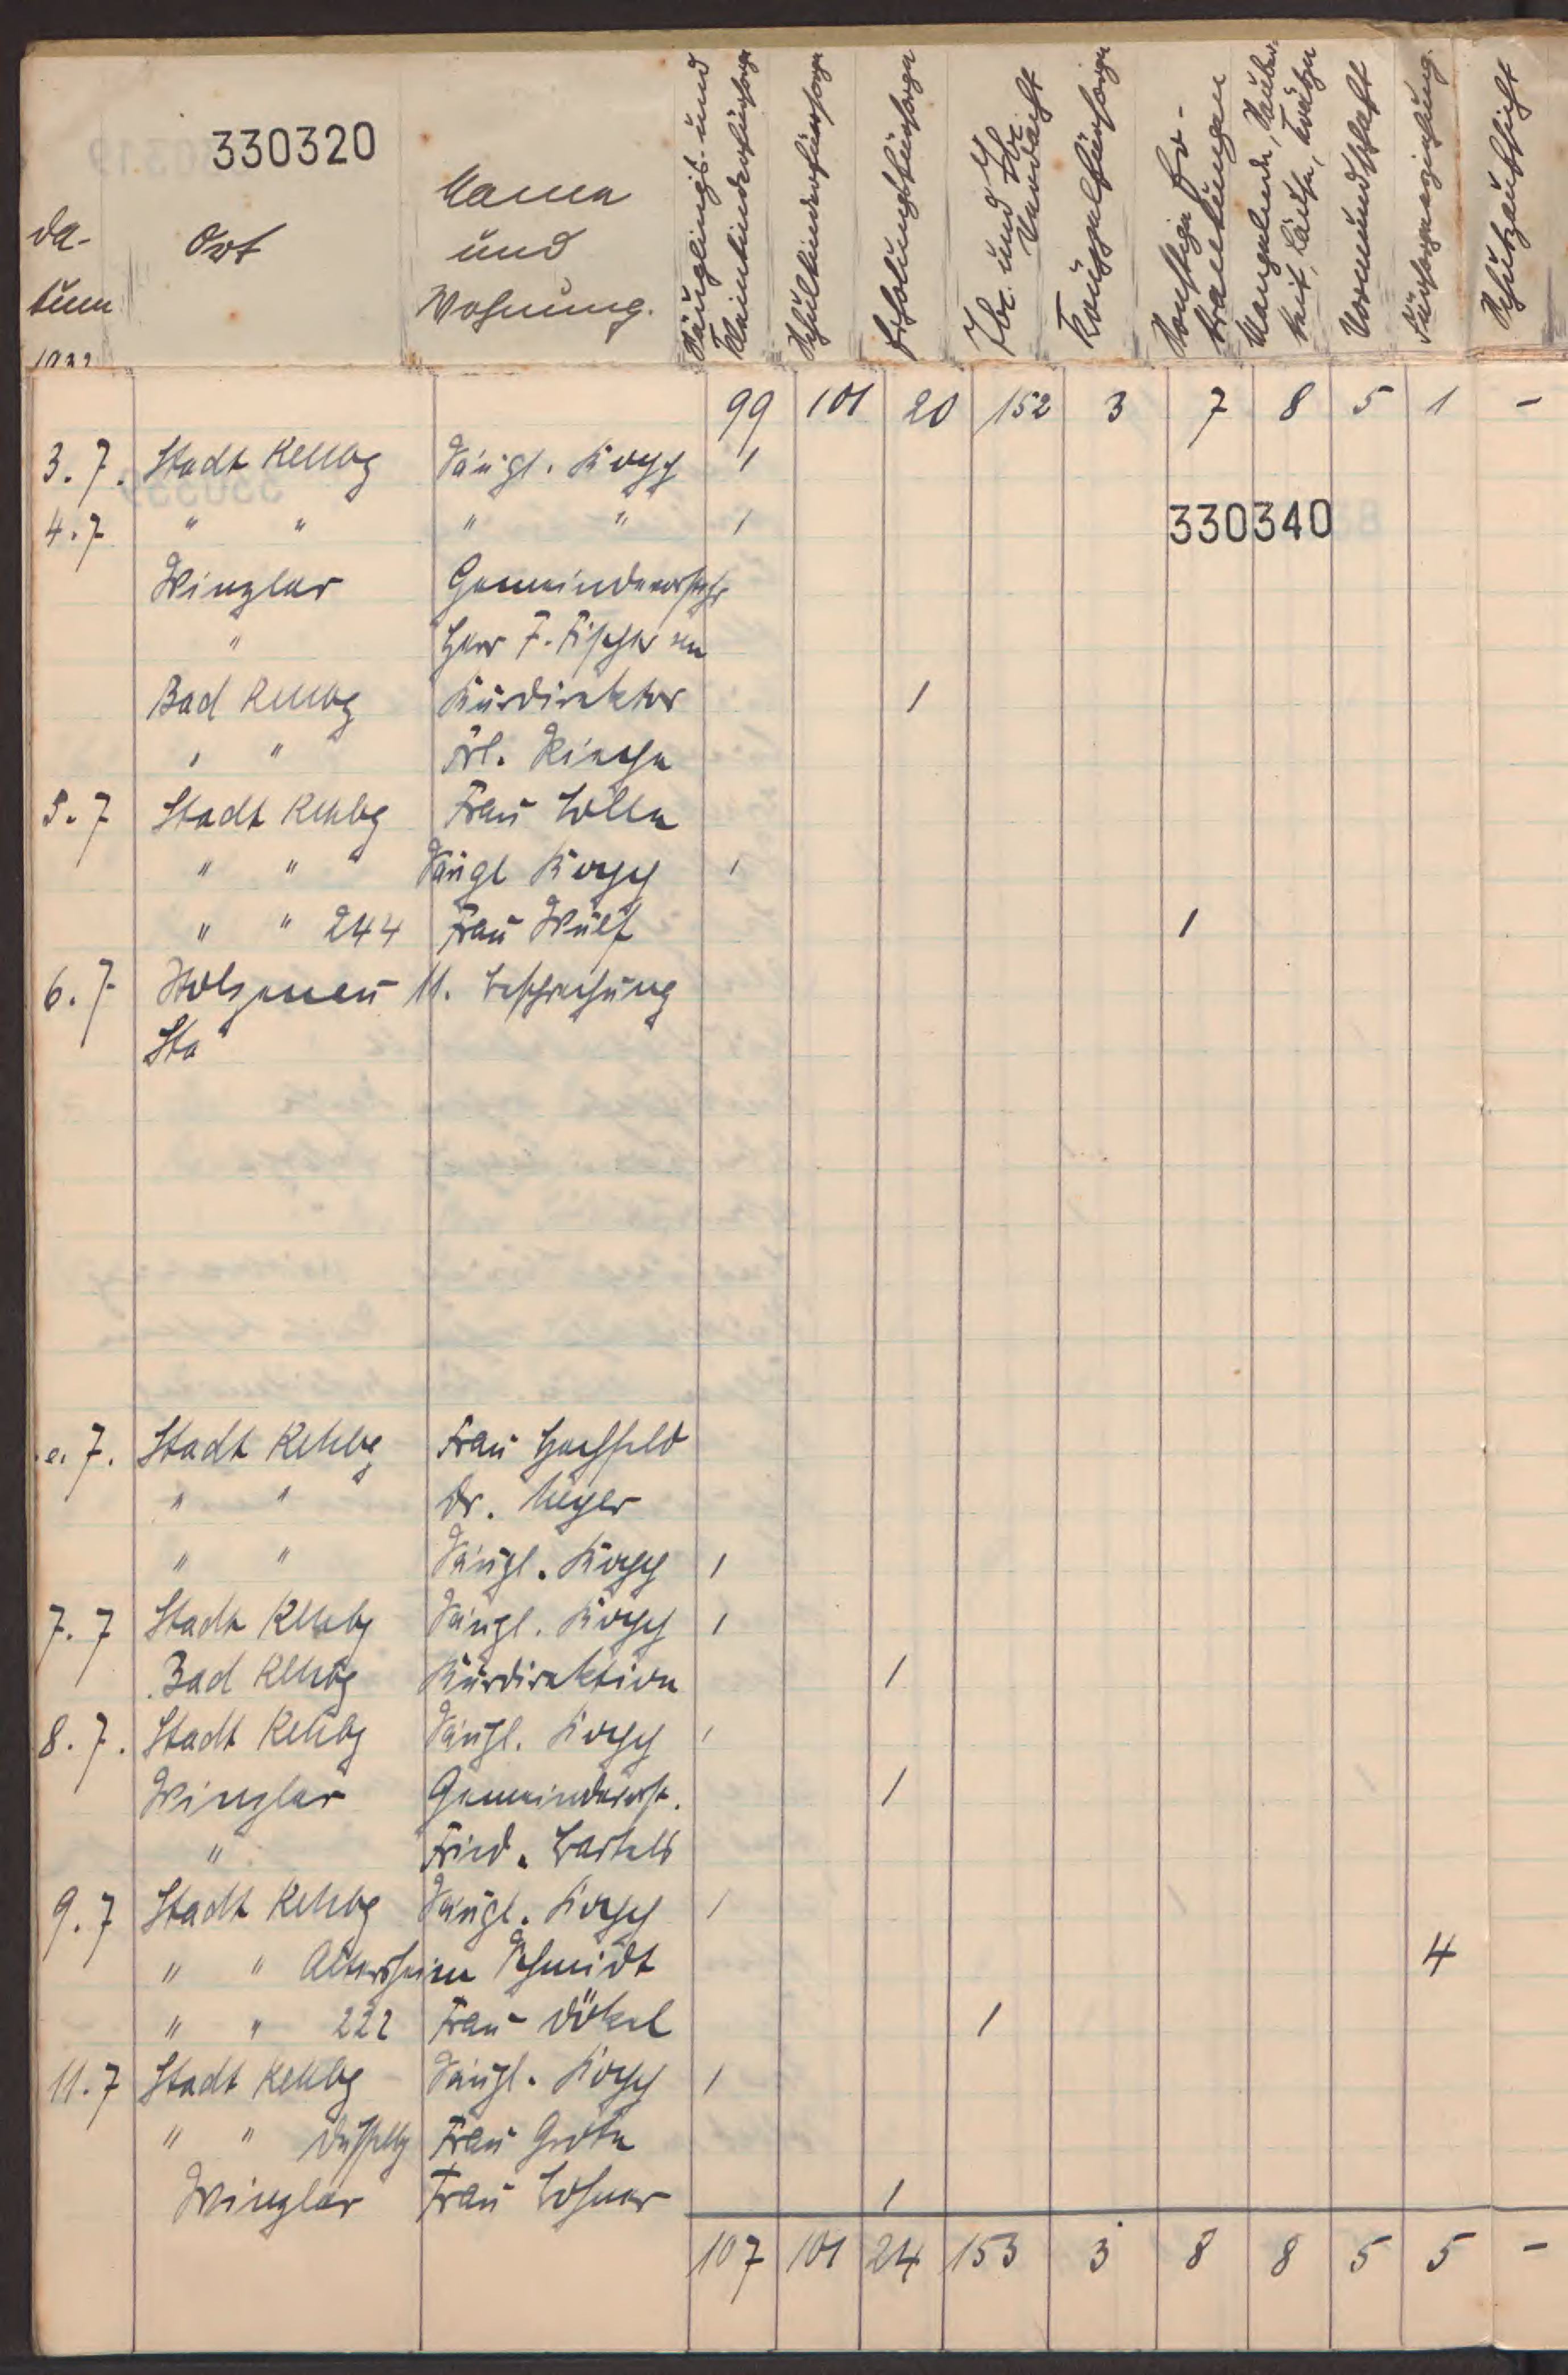 330320
Da-
tum
1932
Ort
Name
und
Wohnung.
Säuglings- und
Kleinkinderfürsorge
Schulkinderfürsorge
Erholungsfürsorge
Tbc. und Tbc.
Verdacht
Krüppelfürsorge
Sonstige Er-
krankungen
Mangelnde Sauber-
keit, Läuse, Krätze
Vormundschaft
Fürsorgeerziehung.
Schutzaufsicht
99 101 20 152 3 7 8 5 1 -
3.7. Stadt Rehbg Säugl. Kopp 1
330340
4.7 " " " " 1
Winzlar Gemeindevorsteher
" Herr F. Fischer
Bad Rehbg Kurdirektor 1
" " Frl.
5.7 Stadt Rehbg Frau Bölle
" " Säugl Kopp 1
" " 244 Frau Wulf 1
6.7 Stolzenau M. Besprechung
Sta
7. Stadt Rehbg Frau Hochfeld
" " Dr. Meyer
" " Säugl. Kopp 1
7.7 Stadt Rehbg Säugl. Kopp 1
Bad Rehbg Kurdirektion 1
8.7. Stadt Rehbg Säugl. Kopp 1
Winzlar Gemeindevorst. 1
" Fried. Bartels
9.7 Stadt Rehbg Säugl. Kopp 1
" " Altersheim Schmidt 4
" " 222 Frau Dökel 1
11.7 Stadt Rehbg Säugl. Kopp 1
" " Düsselbg Frau Grote
Winzlar Frau Büsner 1
107 101 24 153 3 8 8 5 5 -